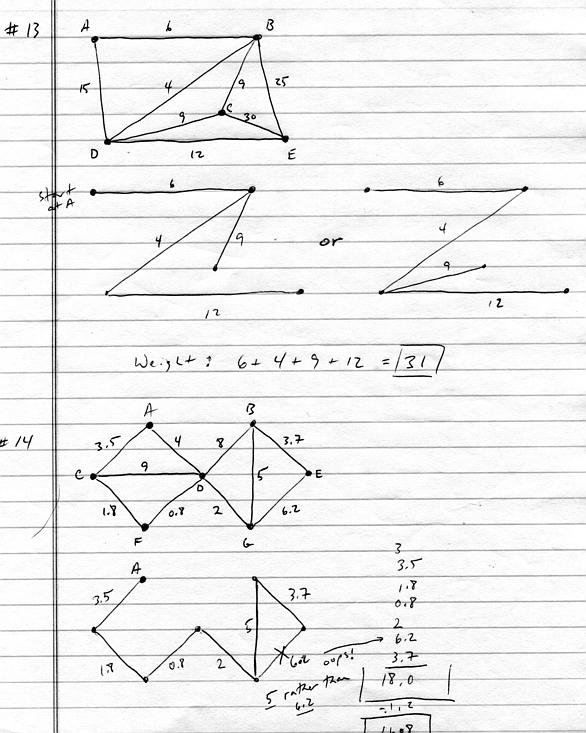 # 13
A 6 B
15 4 9 25
9 C 30
D 12 E
start at A
6 6
4 9 or 4
9
12 12
Weight: 6 + 4 + 9 + 12 = 31
# 14
A B
3.5 4 8 3.7
C 9 D 5 E
1.8 0.8 2 6.2
F G
A
3.5 3.7
5
1.8 0.8 2 6.2 oops!
5 rather than
6.2
3
3.5
1.8
0.8
2
6.2
3.7
18.0
-1.2
16.8